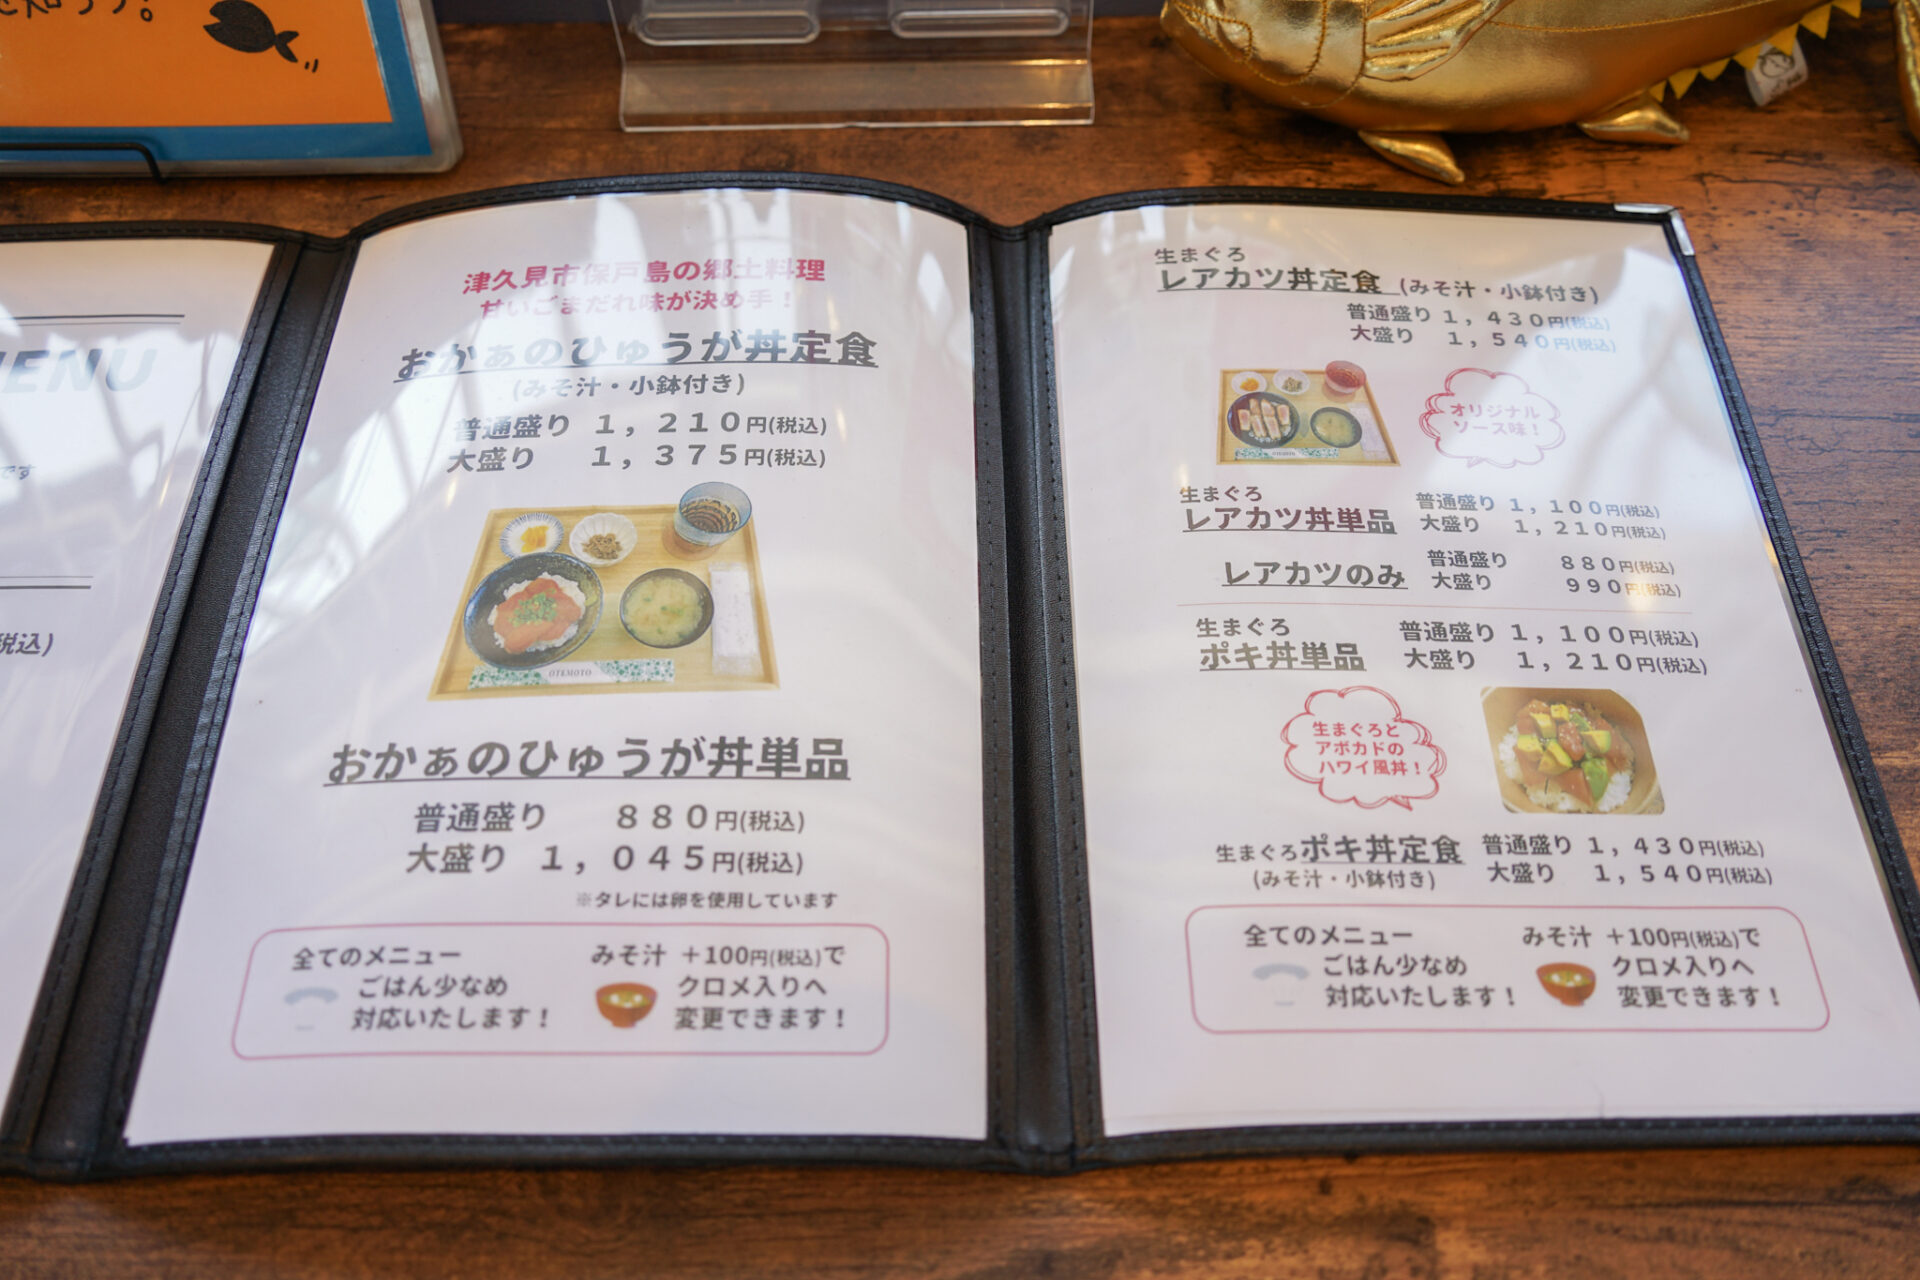 MENU
です
税込)
津久見市保戸島の郷土料理
甘いごまだれ味が決め手！
おかぁのひゅうが丼定食
(みそ汁・小鉢付き)
普通盛り １，２１０円(税込)
大盛り １，３７５円(税込)
OTEMOTO
おかぁのひゅうが丼単品
普通盛り ８８０円(税込)
大盛り １，０４５円(税込)
※タレには卵を使用しています
全てのメニュー
ごはん少なめ
対応いたします！
みそ汁 ＋100円(税込)で
クロメ入りへ
変更できます！
生まぐろ
レアカツ丼定食 (みそ汁・小鉢付き)
普通盛り １，４３０円(税込)
大盛り １，５４０円(税込)
オリジナル
ソース味！
生まぐろ
レアカツ丼単品
普通盛り １，１００円(税込)
大盛り １，２１０円(税込)
レアカツのみ
普通盛り ８８０円(税込)
大盛り ９９０円(税込)
生まぐろ
ポキ丼単品
普通盛り １，１００円(税込)
大盛り １，２１０円(税込)
生まぐろと
アボカドの
ハワイ風丼！
生まぐろポキ丼定食
(みそ汁・小鉢付き)
普通盛り １，４３０円(税込)
大盛り １，５４０円(税込)
全てのメニュー
ごはん少なめ
対応いたします！
みそ汁 ＋100円(税込)で
クロメ入りへ
変更できます！